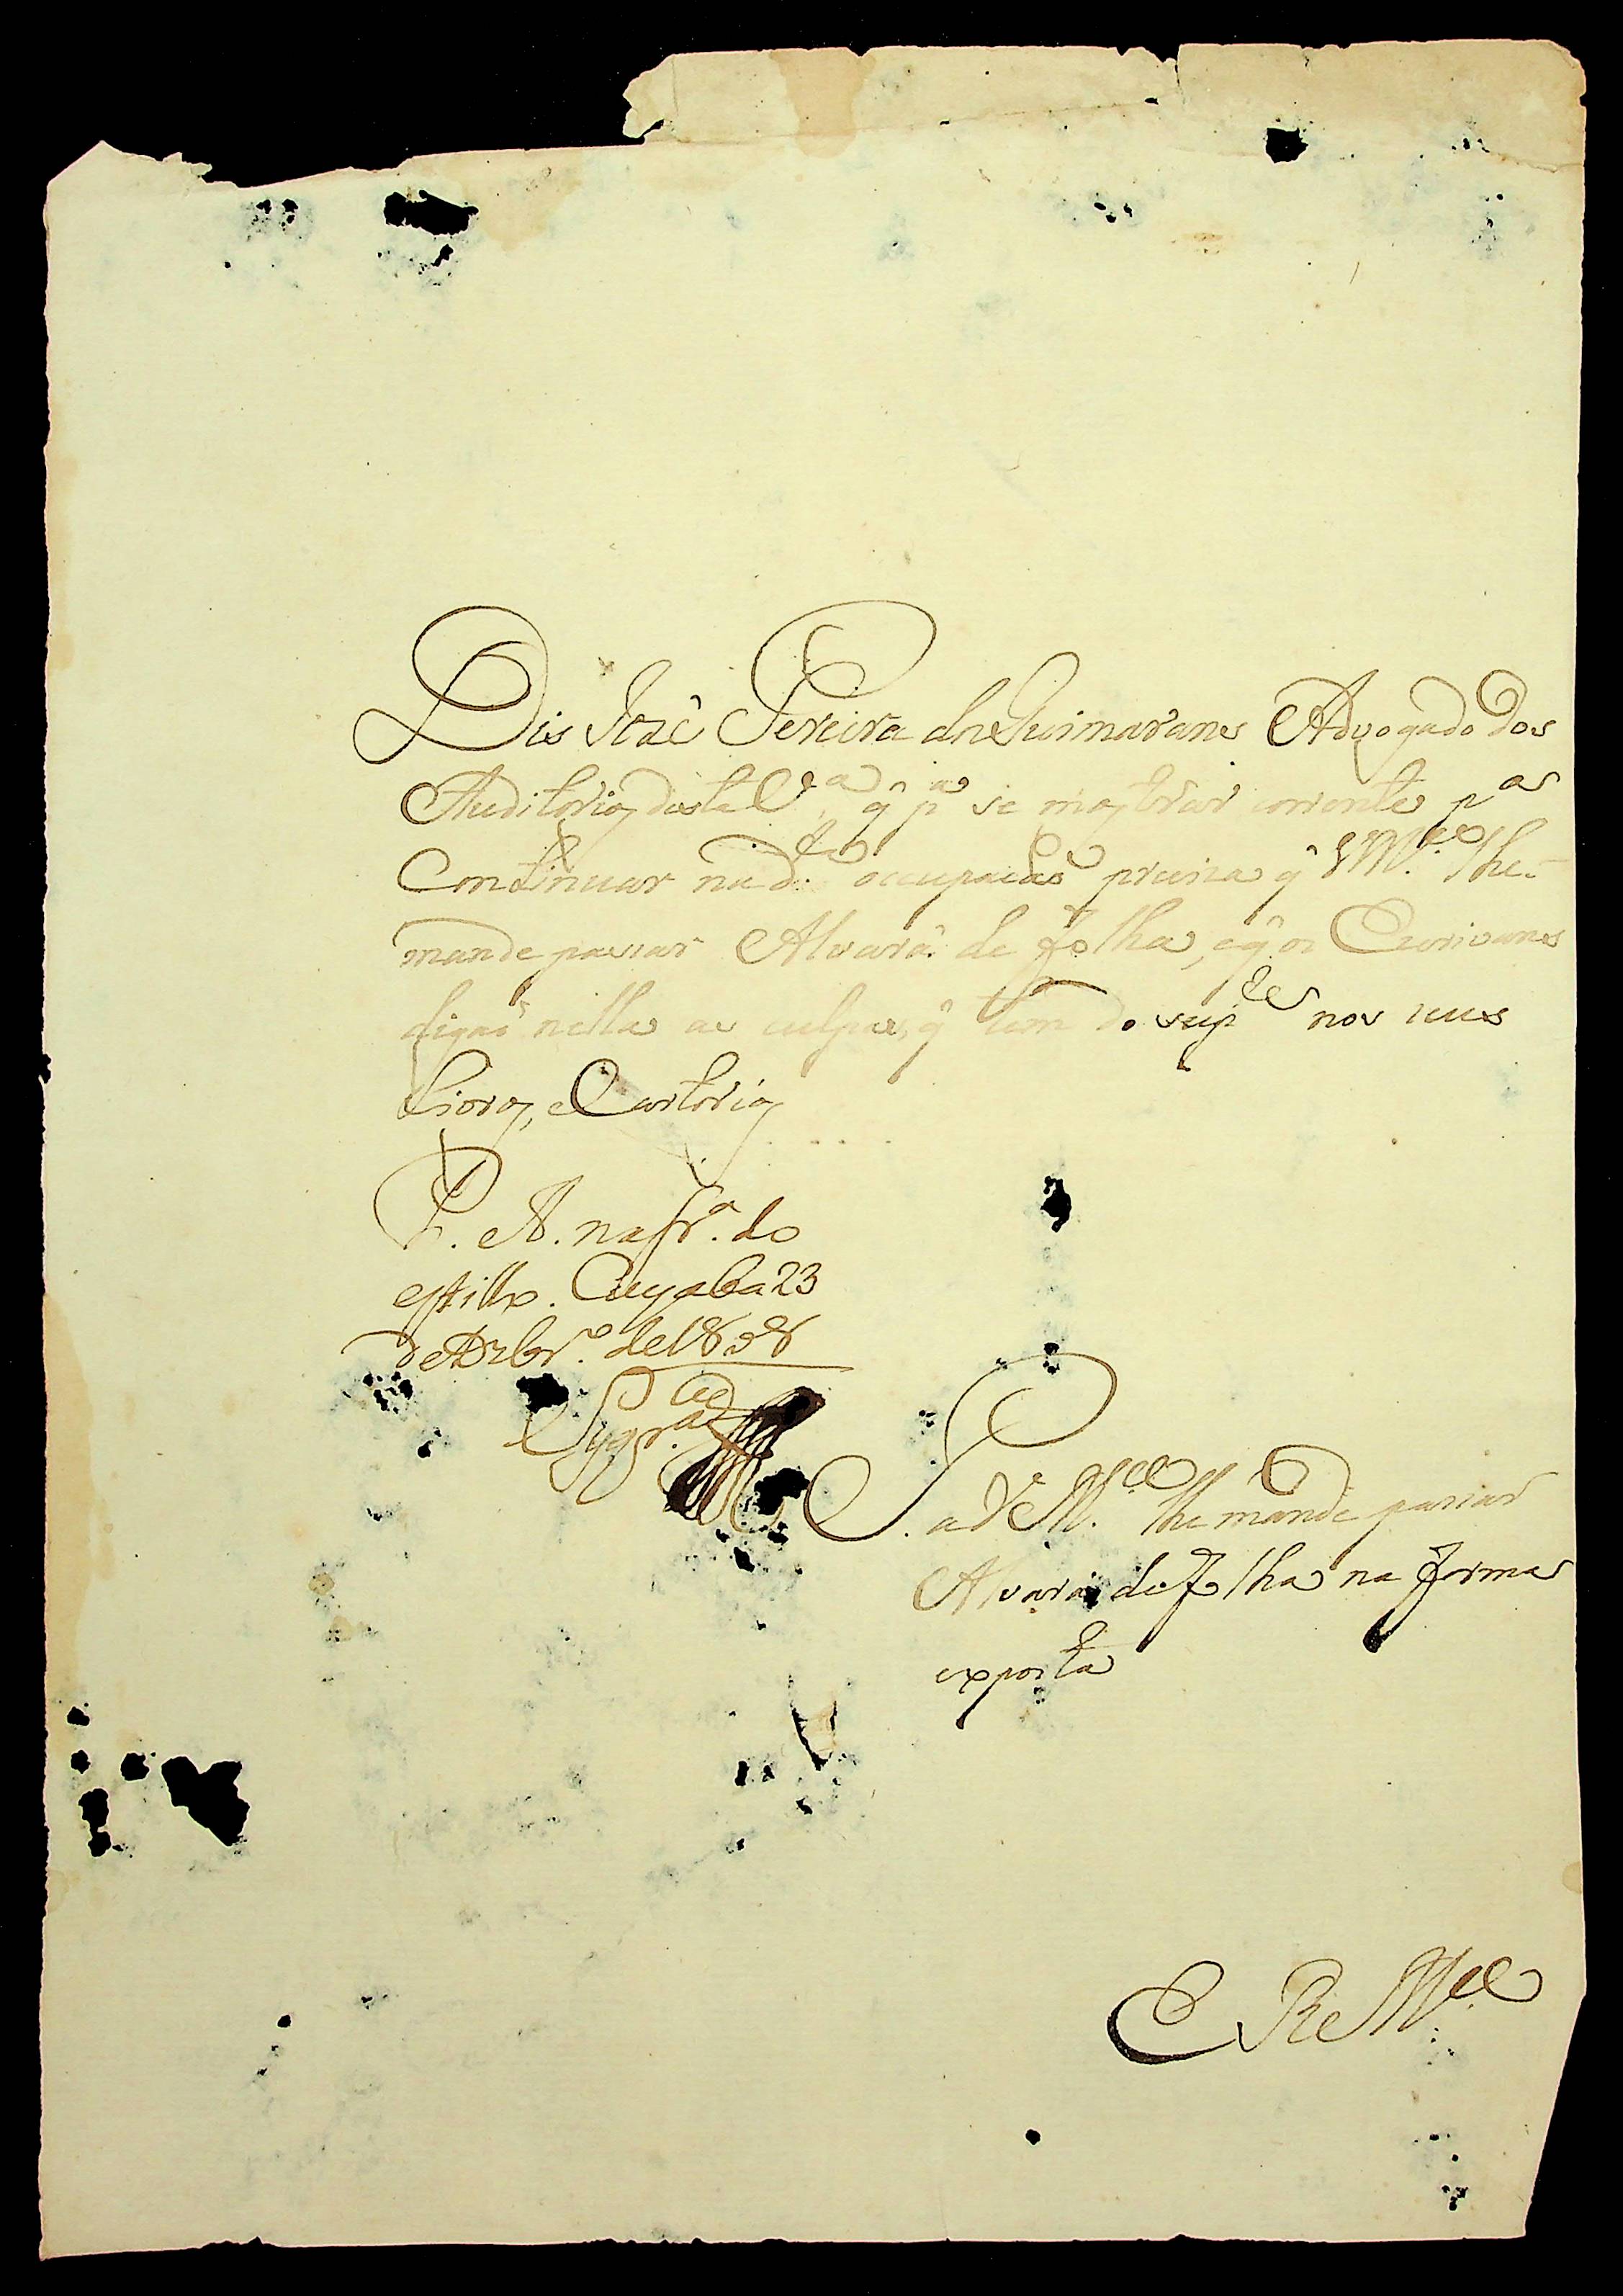 Dis Jozê Pereira dos Guimaranes Advogado dos
Auditorios desta Vª. q̂ pª se mostrar corrente pª
Continuar na dª. occupação preciza q̂ VM.ce lhe
mande passar Alvará de folha, e q̂ os Escrivans
digaõ nella as culpas, q̂ tem do sup.te nos seus
Livros, e Cartorios
P. A. na frª. do
estillo. Cuyaba 23
de Dezbrº. de 1808
P. a VM.ce lhe mande passar
Alvará de folha na forma
exposta
E R Mce